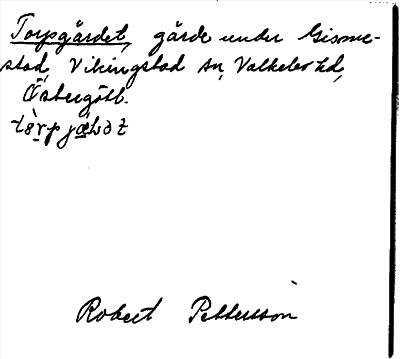 Torpsgärdet, gärde under Gisme-
stad, Vikingstad sn, Valkebo hd,
Östergötl.
Robert Pettersson